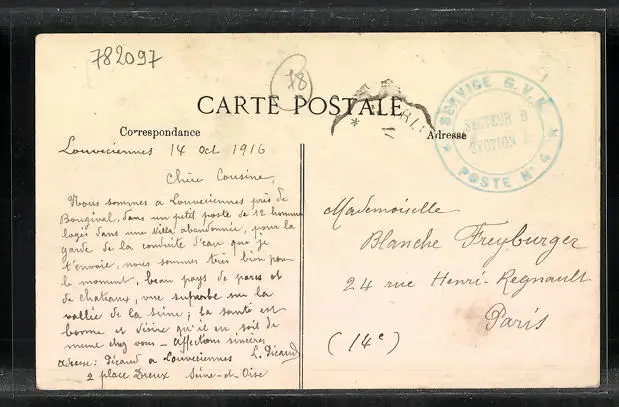 782097
18
CARTE POSTALE
SERVICE G.V.C.
SECTEUR D
SECTION 1
POSTE N° 4
Correspondance
Adresse
Louveciennes 14 Oct 1916
Chère Cousine,
Nous sommes a Louveciennes près de
Bougival, dans un petit poste de 12 homme
logés dans une villa abandonnée, pour la
garde de la conduite d'eau que je
t'envoie, nous sommes très bien pour
le moment, beau pays de parcs et
de chateaux, vue superbe sur la
vallée de la seine ; la santé est
bonne et désire qu'il en soit de
meme chez vous - affections sincères
L. Picaud
adresse : Picaud a Louveciennes
2 place Dreux Seine-et-Oise
Mademoiselle
Blanche Freyburger
24 rue Henri-Regnault
Paris
(14e)